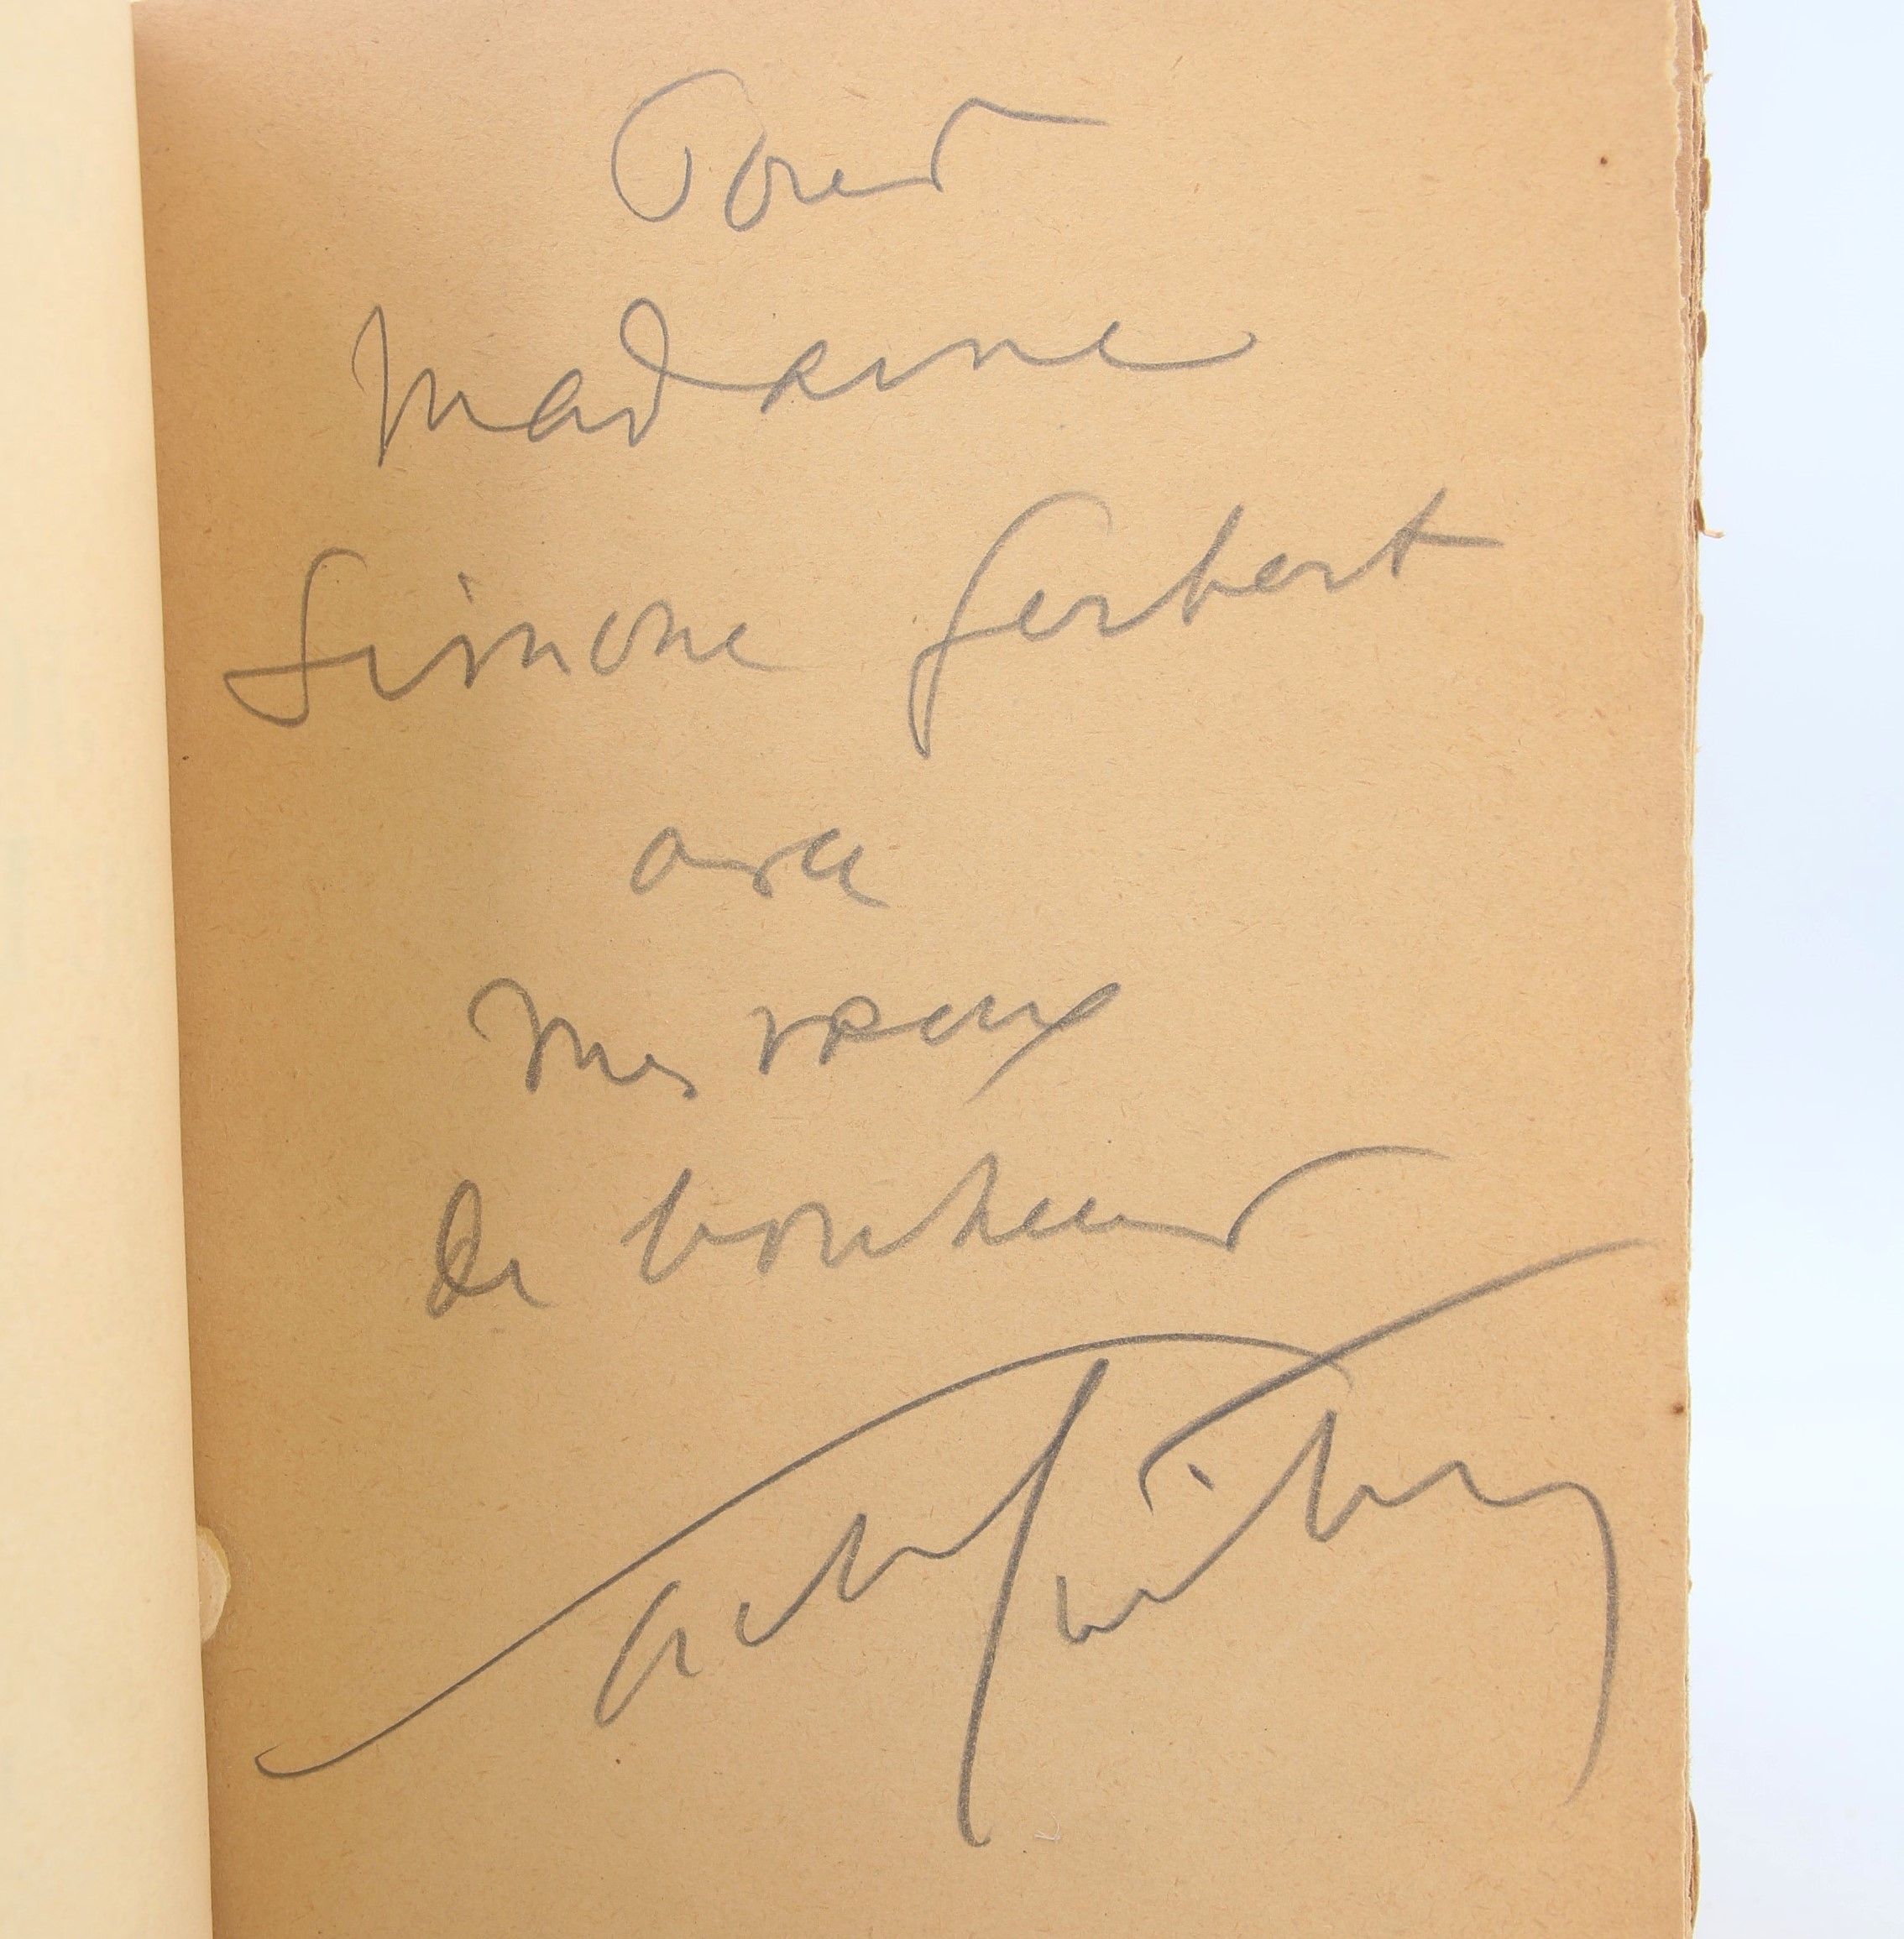 Pour
Madame
Simone Gerbert
avec
mes vœux
de bonheur
Sacha Guitry